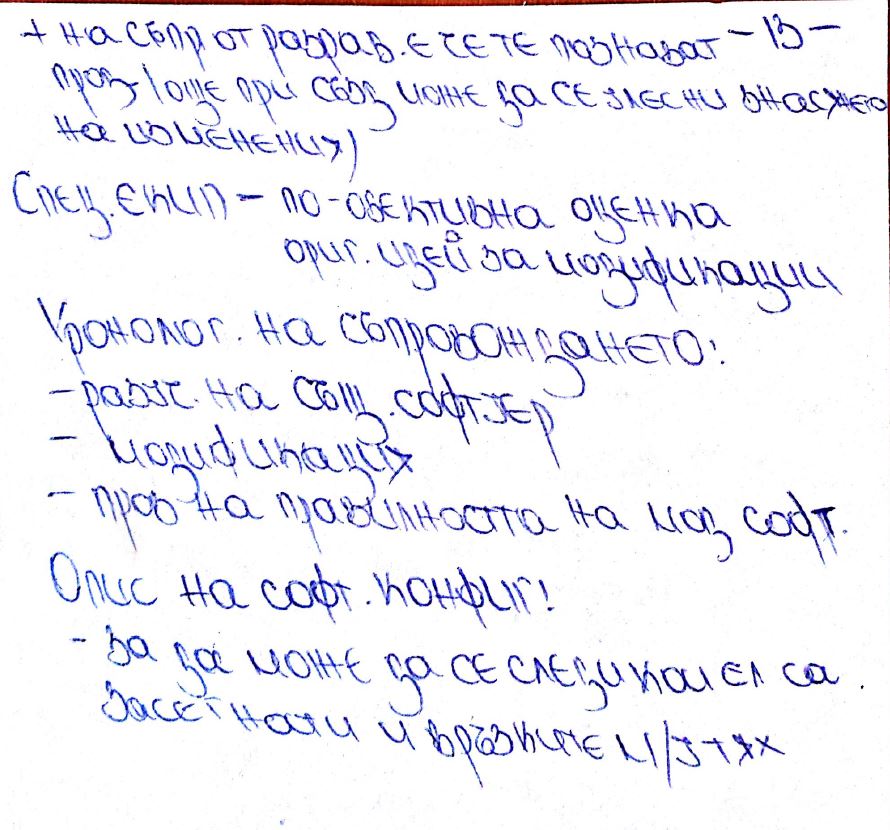 + на съпр от разраб. е че те познават – 13 –
прог / още при създ може да се улесни внасянето
на изменения)
Спец. екип – по-обективна оценка
ориг. идей за модификации
Хронолог. на съпровождането:
– разуч. на същ. софтуер
– модификация
– пров на правилността на мод софт.
Опис на софт. конфиг:
– за да може да се следи кои ел са
засегнати и връзките м/у тях